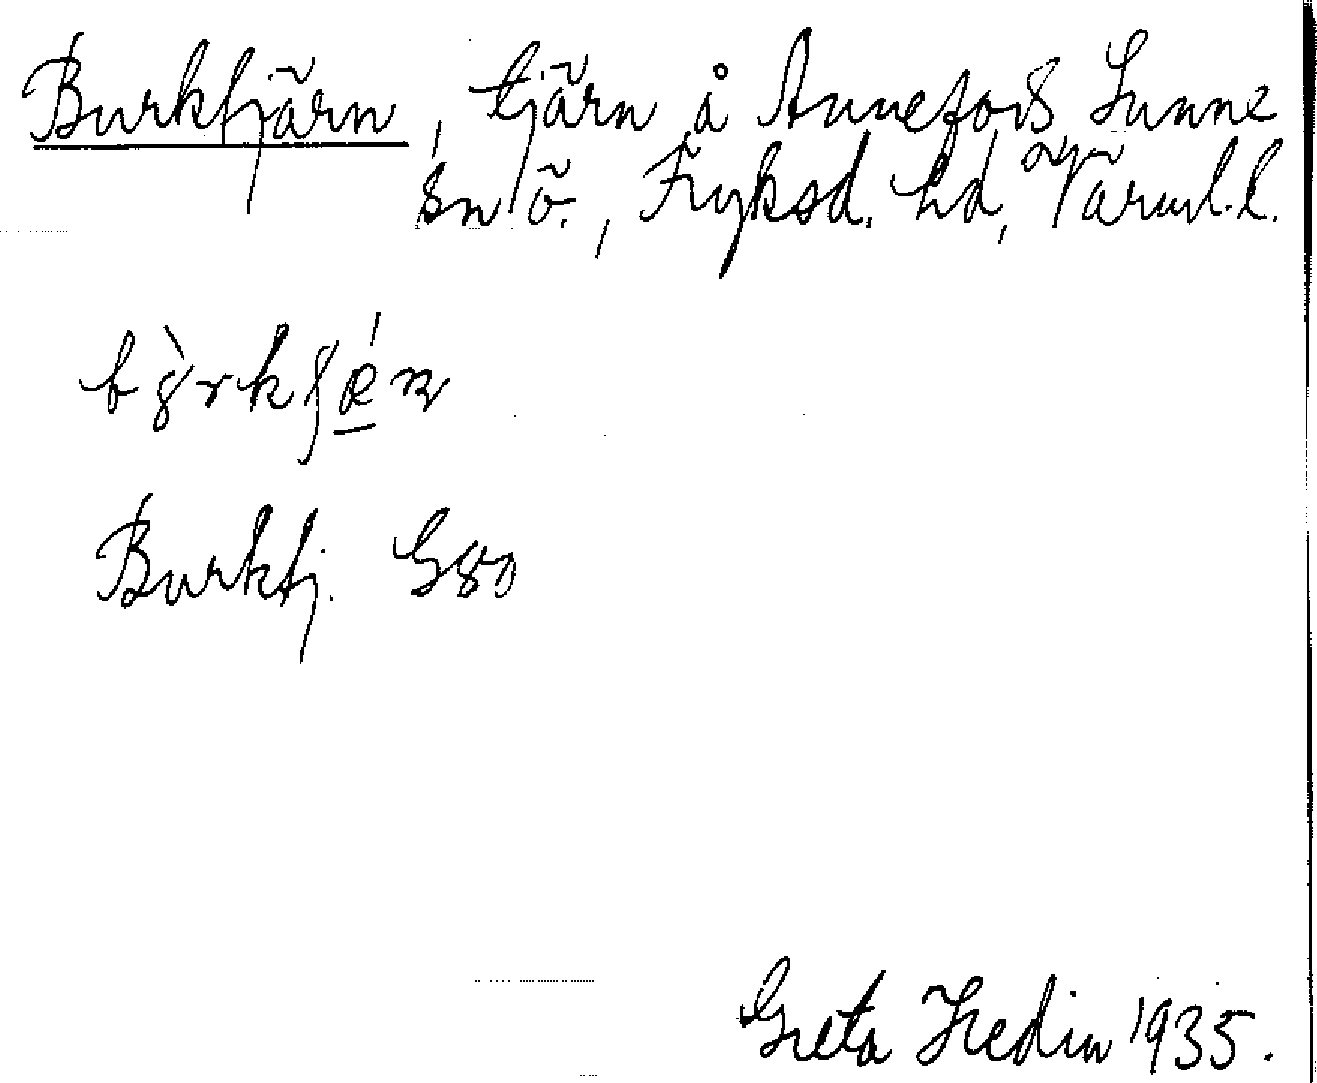 Burktjärn, tjärn å Annefors, Sunne
sn ö., Fryksd. hd, Värml. l.
Burktj. G80
Greta Hedin 1935.